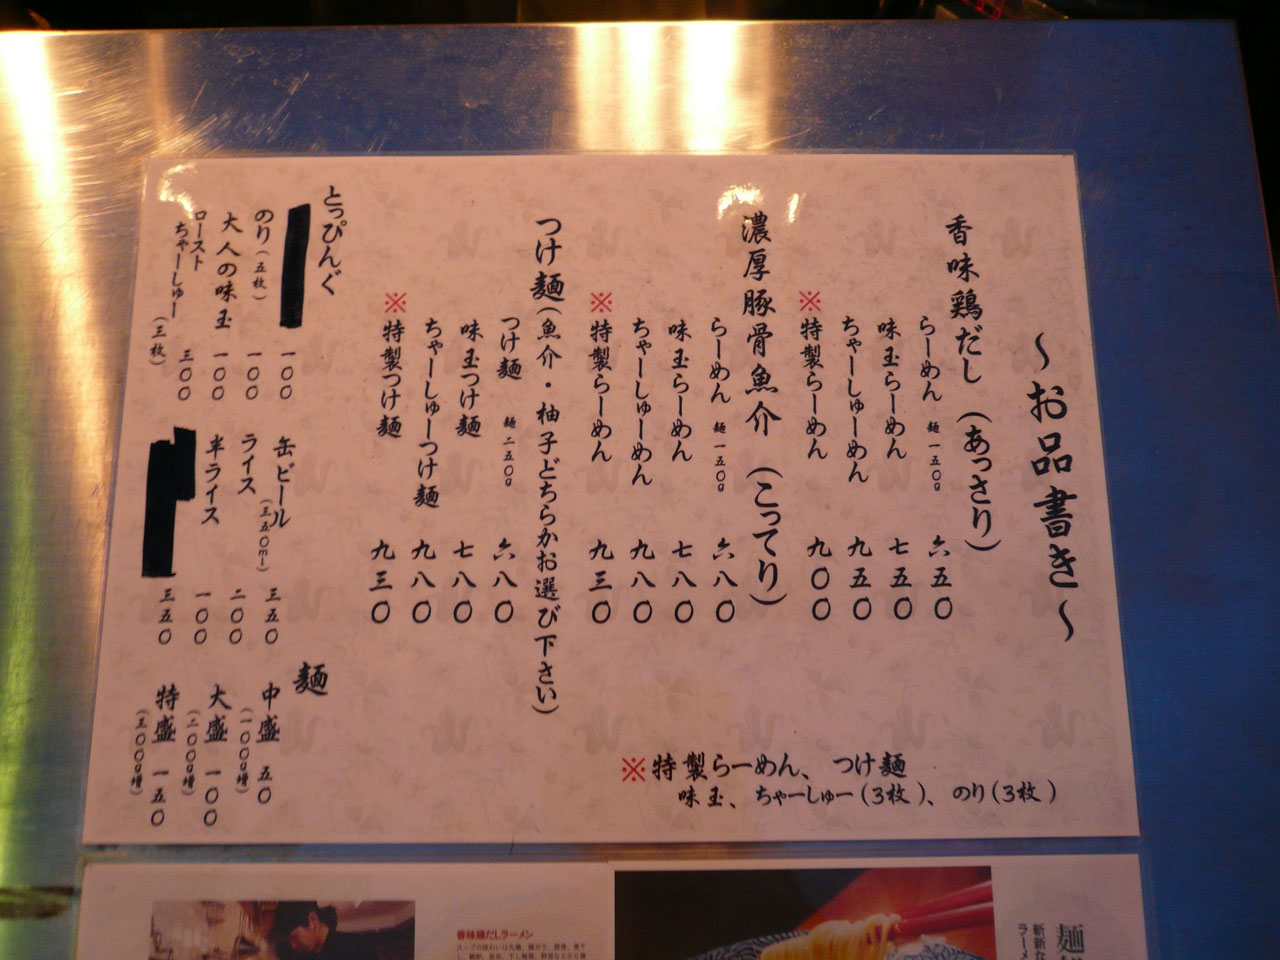 ～お品書き～
香味鶏だし（あっさり）
らーめん 麺一五〇g 六五〇
味玉らーめん 七五〇
ちゃーしゅーめん 九五〇
※特製らーめん 九〇〇
濃厚豚骨魚介（こってり）
らーめん 麺一五〇g 六八〇
味玉らーめん 七八〇
ちゃーしゅーめん 九八〇
※特製らーめん 九三〇
つけ麺（魚介・柚子どちらかお選び下さい）
つけ麺 麺二五〇g 六八〇
味玉つけ麺 七八〇
ちゃーしゅーつけ麺 九八〇
※特製つけ麺 九三〇
※特製らーめん、つけ麺
味玉、ちゃーしゅー(3枚)、のり(3枚)
とっぴんぐ
一〇〇
のり（五枚） 一〇〇
大人の味玉 一〇〇
ロースト
ちゃーしゅー（三枚） 三〇〇
缶ビール（三五〇ml） 三五〇
ライス 二〇〇
半ライス 一〇〇
三五〇
麺
中盛 五〇
（一〇〇g増）
大盛 一〇〇
（二〇〇g増）
特盛 一五〇
（三〇〇g増）
香味鶏だしラーメン
麺
斬新な
ラーメ